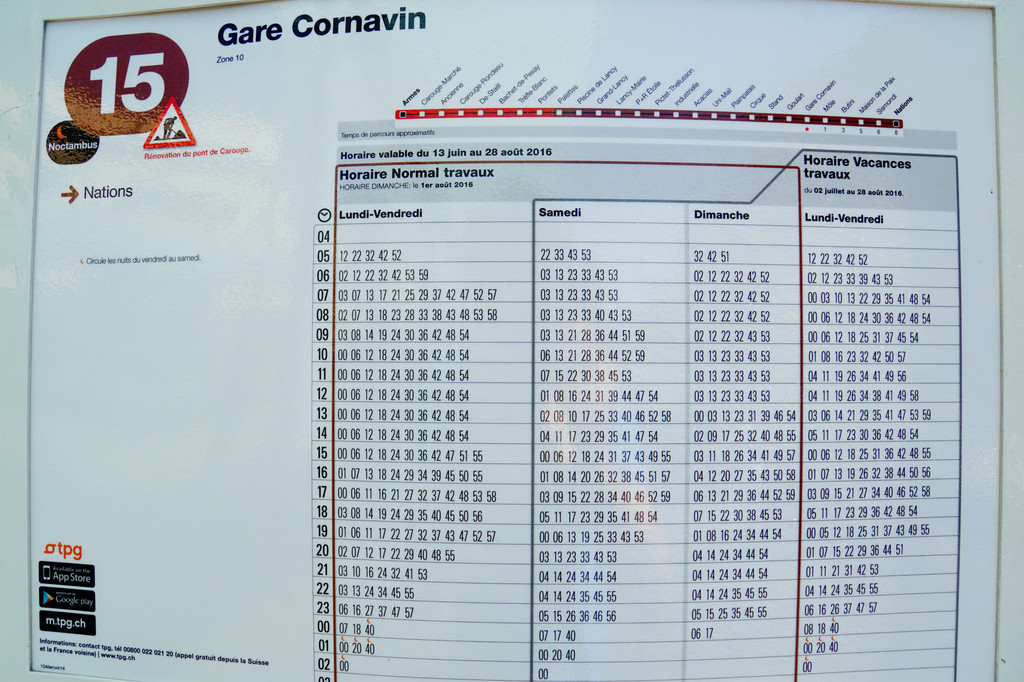 15
Gare Cornavin
Zone 10
Noctambus
Rénovation du pont de Carouge.
Nations
Circule les nuits du vendredi au samedi.
Armes
Carouge-Marché
Ancienne
Carouge-Rondeau
De-Staël
Bachet-de-Pesay
Trèfle-Blanc
Pontets
Palettes
Piscine de Lancy
Grand-Lancy
Lancy-Mairie
P+R Étoile
Pictet-Thellusson
Industrielle
Acacias
Uni-Mail
Plainpalais
Cirque
Stand
Goulart
Gare Cornavin
Môle
Butini
Maison de la Paix
Sismondi
Nations
1 3 5 6 8
Temps de parcours approximatifs
Horaire valable du 13 juin au 28 août 2016
Horaire Normal travaux
HORAIRE DIMANCHE: le 1er août 2016
Horaire Vacances
travaux
du 02 juillet au 28 août 2016.
Lundi-Vendredi Samedi Dimanche Lundi-Vendredi
04
05 12 22 32 42 52 22 33 43 53 32 42 51 12 22 32 42 52
06 02 12 22 32 42 53 59 03 13 23 33 43 53 02 12 22 32 42 52 02 12 23 33 39 43 53
07 03 07 13 17 21 25 29 37 42 47 52 57 03 13 23 33 43 53 02 12 22 32 42 52 00 03 10 13 22 29 35 41 48 54
08 02 07 13 18 23 28 33 38 43 48 53 58 03 13 23 33 40 43 53 02 12 22 32 42 52 00 06 12 18 24 30 36 42 48 54
09 03 08 14 19 24 30 36 42 48 54 03 13 21 28 36 44 51 59 02 12 22 32 43 53 00 06 12 18 25 31 37 45 54
10 00 06 12 18 24 30 36 42 48 54 06 13 21 28 36 44 52 59 03 13 23 33 43 53 01 08 16 23 32 42 50 57
11 00 06 12 18 24 30 36 42 48 54 07 15 22 30 38 45 53 03 13 23 33 43 53 04 11 19 26 34 41 49 56
12 00 06 12 18 24 30 36 42 48 54 01 08 16 24 31 39 44 47 54 03 13 23 33 43 53 04 11 19 26 34 38 41 49 58
13 00 06 12 18 24 30 36 42 48 54 02 08 10 17 25 33 40 46 52 58 00 03 13 23 31 39 46 54 03 06 14 21 29 35 41 47 53 59
14 00 06 12 18 24 30 36 42 48 54 04 11 17 23 29 35 41 47 54 02 09 17 25 32 40 48 55 05 11 17 23 30 36 42 48 54
15 00 06 12 18 24 30 36 42 47 51 55 00 06 12 18 24 31 37 43 49 55 03 11 18 26 34 41 49 57 00 06 12 18 25 31 36 42 48 55
16 01 07 13 18 24 29 34 39 45 50 55 01 08 14 20 26 32 38 45 51 57 04 12 20 27 35 43 50 58 01 07 13 19 26 32 38 44 50 56
17 00 06 11 16 21 27 32 37 42 48 53 58 03 09 15 22 28 34 40 46 52 59 06 13 21 29 36 44 52 59 03 09 15 21 27 34 40 46 52 58
18 03 08 14 19 24 29 35 40 45 50 56 05 11 17 23 29 35 41 48 54 07 15 22 30 38 45 53 05 11 17 23 29 36 42 48 54
19 01 06 11 17 22 27 32 37 43 47 52 57 00 06 13 19 25 33 43 53 01 08 16 24 34 44 54 00 05 12 18 25 31 37 43 49 55
20 02 07 12 17 22 29 40 48 55 03 13 23 33 43 53 04 14 24 34 44 54 01 07 15 22 29 36 44 51
21 03 10 16 24 32 41 53 04 14 24 34 44 54 04 14 24 34 44 54 01 11 21 31 42 53
22 03 13 24 34 45 55 04 14 24 35 45 55 04 14 24 35 45 55 04 14 24 35 45 55
23 06 16 27 37 47 57 05 15 26 36 46 56 05 15 25 35 45 55 06 16 26 37 47 57
00 07 18 40 07 17 40 06 17 08 18 40
01 00 20 40 00 20 40 00 20 40
02 00 00 00
tpg
Available on the
App Store
Google play
m.tpg.ch
Informations: contact tpg, tél 00800 022 021 20 (appel gratuit depuis la Suisse
et la France voisine) | www.tpg.ch